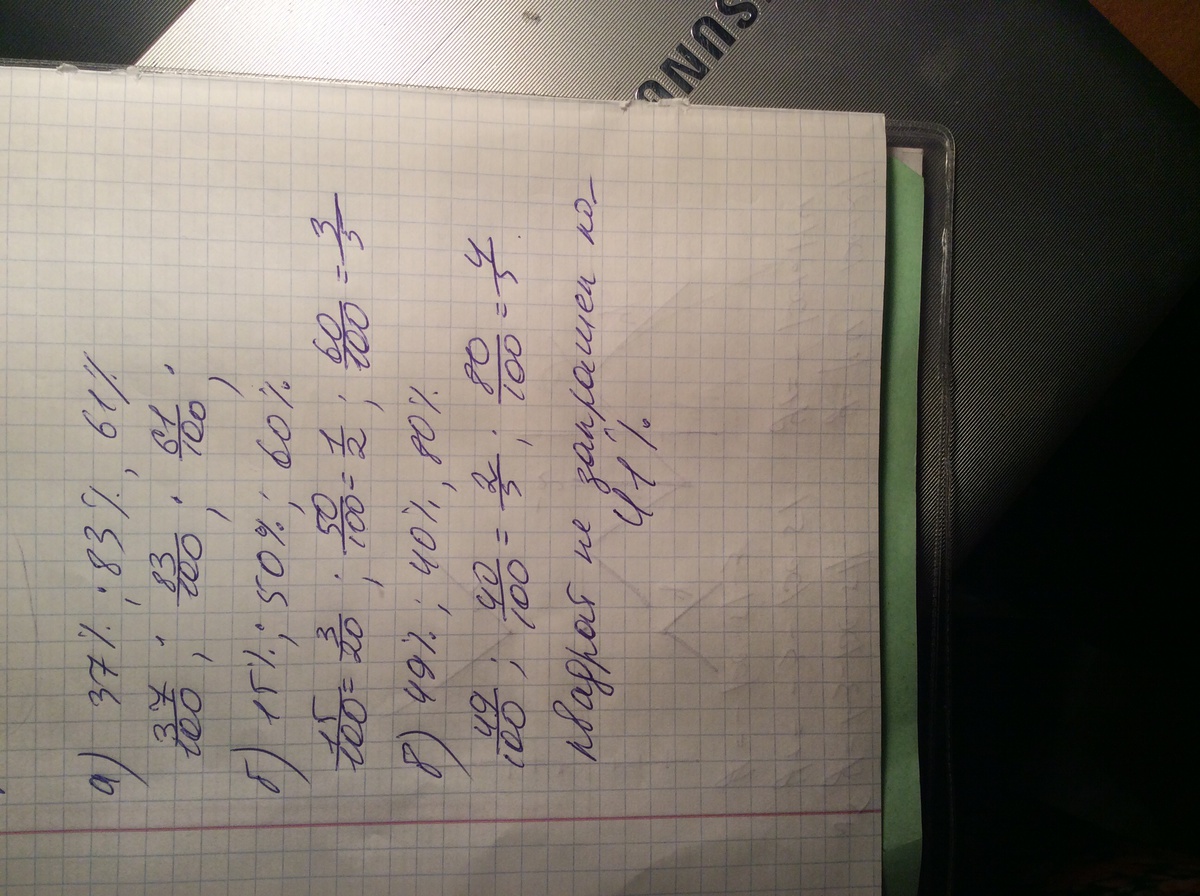 а) 37%; 83%; 61%
37/100; 83/100; 61/100;
б) 15%; 50%; 60%
15/100 = 3/20; 50/100 = 1/2; 60/100 = 3/5
в) 49%; 40%; 80%
49/100; 40/100 = 2/5; 80/100 = 4/5
квадрат не закрашен на
41%
SAMSUNG